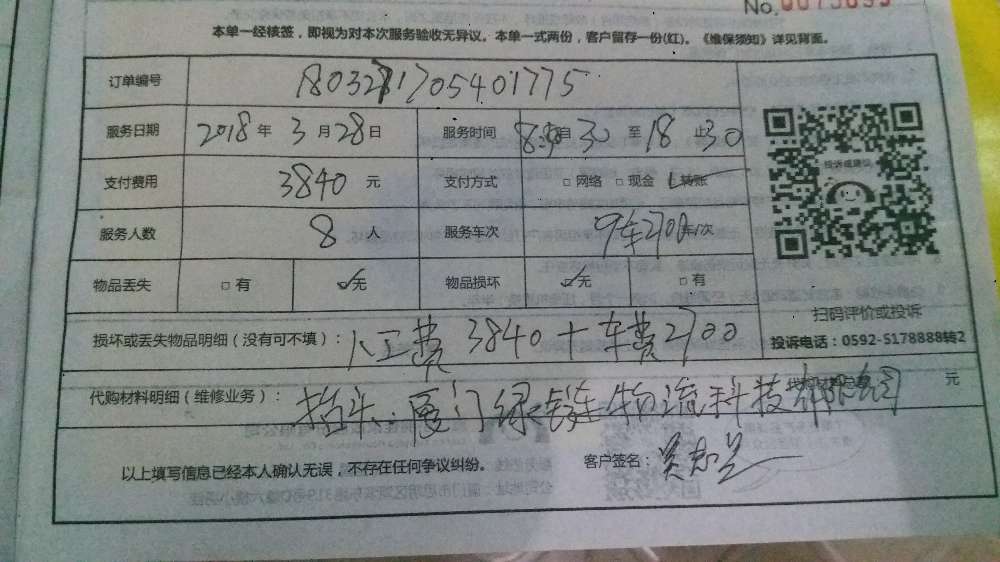 No.
本单一经核签，即视为对本次服务验收无异议。本单一式两份，客户留存一份(红)。《维保须知》详见背面。
订单编号 180327170540 1775
服务日期 2018年 3月28日 服务时间 8 自30 至18 止30
支付费用 3840 元 支付方式 □网络 □现金 转账
服务人数 8 人 服务车次 9车2700 车/次
物品丢失 □有 ✓无 物品损坏 ✓无 □有
投诉或建议
扫码评价或投诉
投诉电话：0592-5178888转2
损坏或丢失物品明细（没有可不填）：人工费3840+车费2700
代购材料明细（维修业务）：抬头：厦门绿链物流科技有限公司 元
以上填写信息已经本人确认无误，不存在任何争议纠纷。 客户签名：